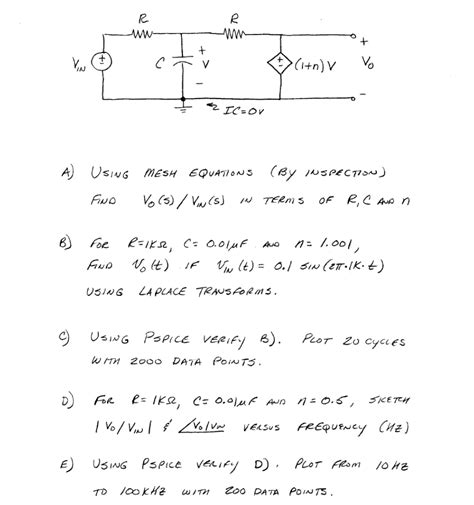 R R
VIN + - C + V - + - (1+n)V + Vo -
IC=0V
A) USING MESH EQUATIONS (BY INSPECTION)
FIND Vo(s)/VIN(s) IN TERMS OF R, C AND n
B) FOR R=1KΩ, C= 0.01μF AND n= 1.001,
FIND Vo(t) IF VIN(t) = 0.1 SIN(2π·1K·t)
USING LAPLACE TRANSFORMS.
C) USING PSPICE VERIFY B). PLOT 20 CYCLES
WITH 2000 DATA POINTS.
D) FOR R= 1KΩ, C= 0.01μF AND n= 0.5, SKETCH
|Vo/VIN| & ∠Vo/VIN VERSUS FREQUENCY (HZ)
E) USING PSPICE VERIFY D). PLOT FROM 10HZ
TO 100KHZ WITH 200 DATA POINTS.